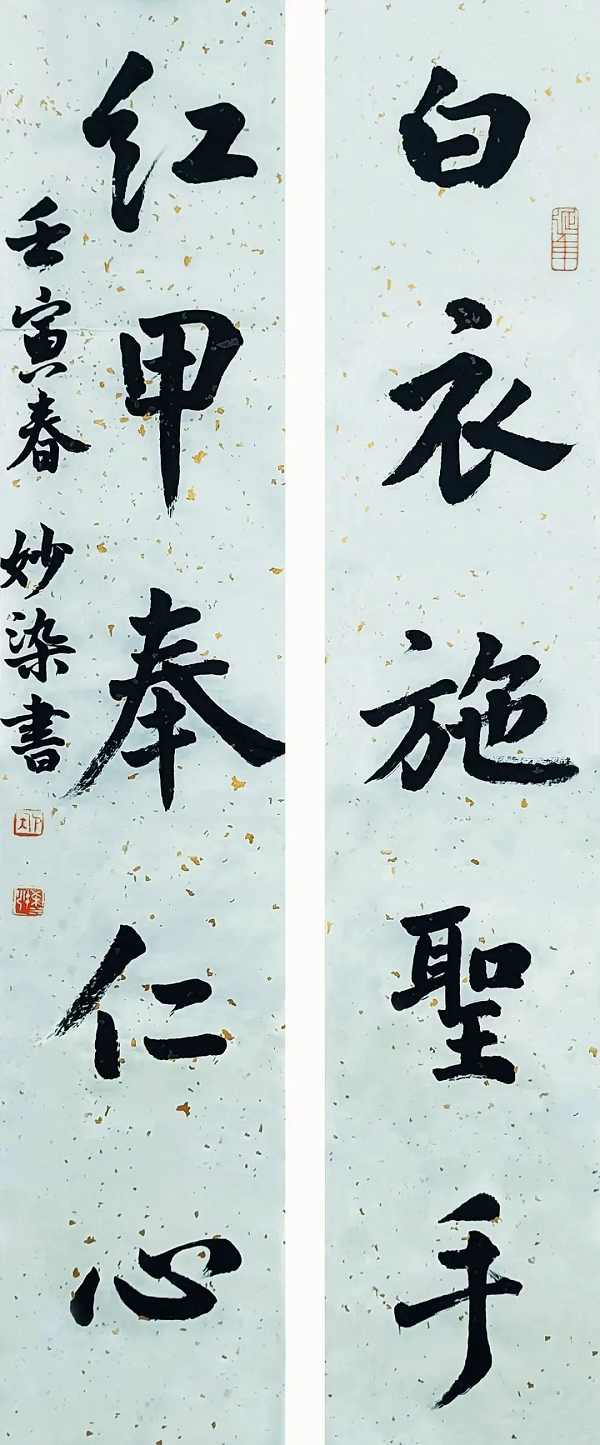 白衣施聖手
红甲奉仁心
壬寅春 妙染書